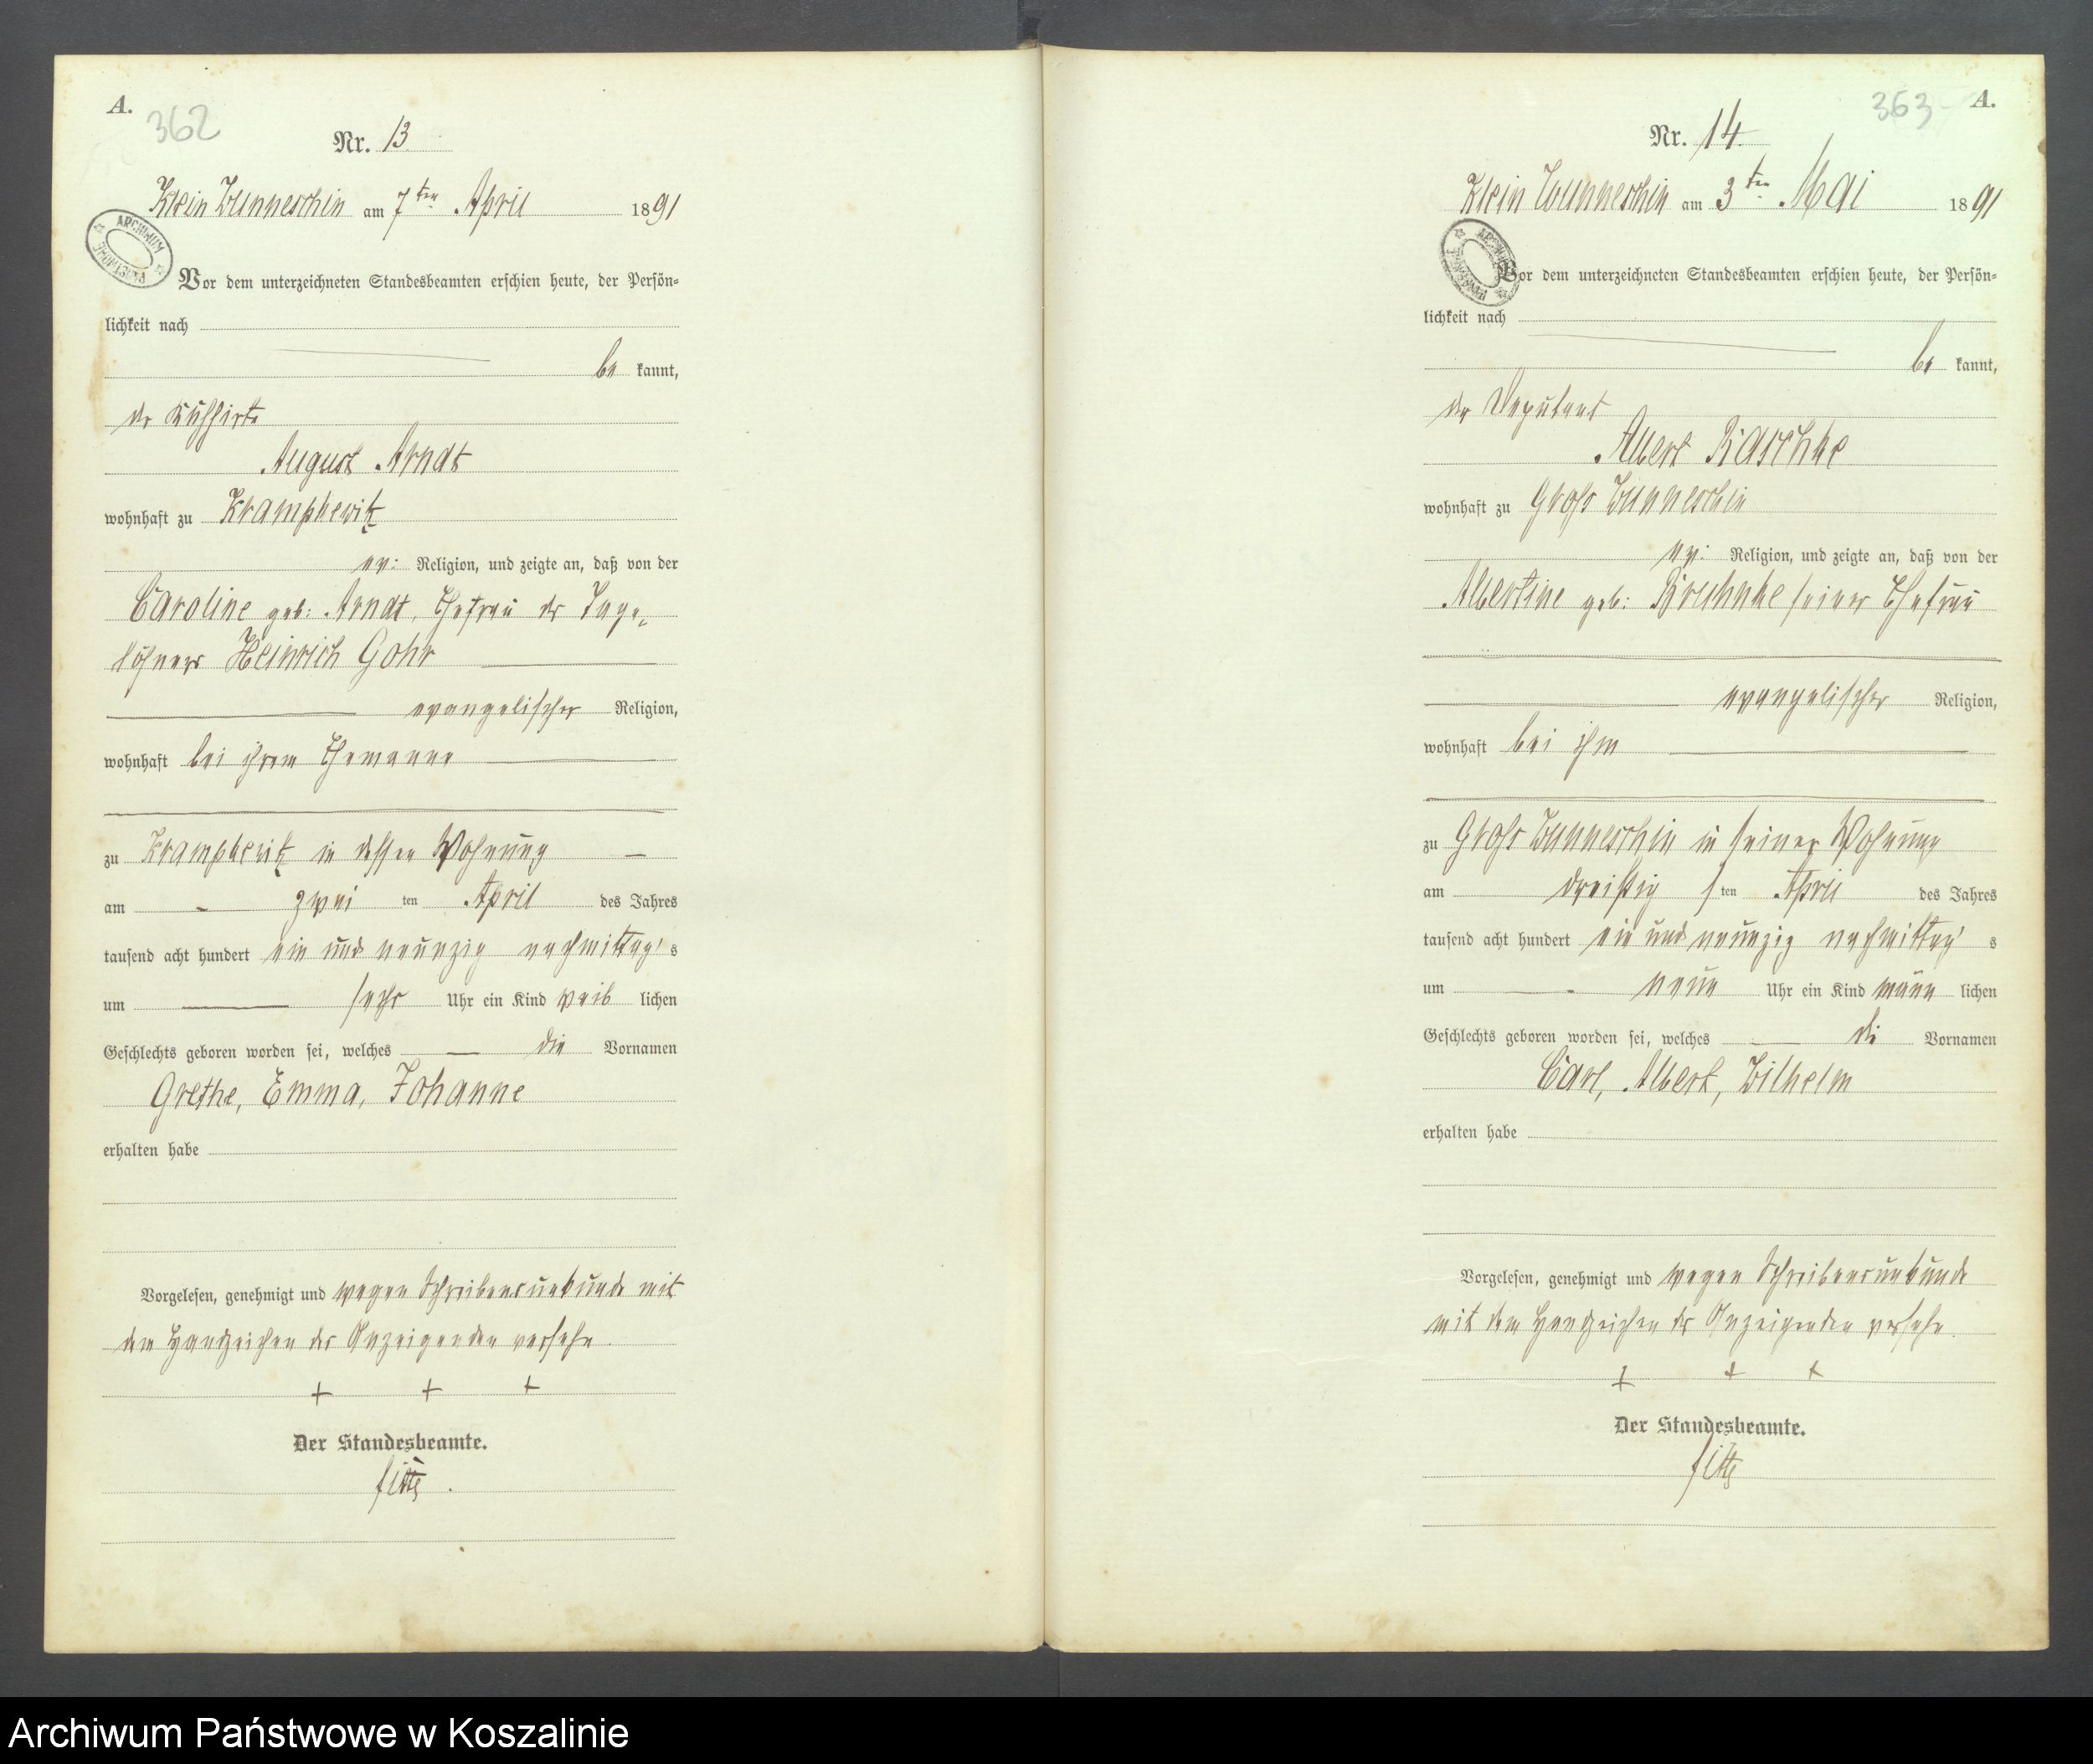 A.
362
Nr. 13.
Klein Wunneschin am 7ten April 1891
ARCHIWUM
Vor dem unterzeichneten Standesbeamten erschien heute, der Persön-
lichkeit nach
be kannt,
der Kuhhirte
August Arndt
wohnhaft zu Krampkewitz
ev: Religion, und zeigte an, daß von der
Caroline geb: Arndt, Ehefrau des Tage-
löhners Heinrich Gohr
evangelischer Religion,
wohnhaft bei ihrem Ehemanne
zu Krampkewitz in dessen Wohnung
am zwei ten April des Jahres
tausend acht hundert ein und neunzig nachmittag's
um sechs Uhr ein Kind weib lichen
Geschlechts geboren worden sei, welches die Vornamen
Grethe, Emma, Johanne
erhalten habe
Vorgelesen, genehmigt und wegen Schreibensunkunde mit
dem Handzeichen des Anzeigenden versehn.
+ + +
Der Standesbeamte.
A.
363
Nr. 14.
Klein Wunneschin am 3ten Mai 1891
Vor dem unterzeichneten Standesbeamten erschien heute, der Persön-
lichkeit nach
be kannt,
der Deputant
Albert Raschke
wohnhaft zu Gross Wunneschin
ev: Religion, und zeigte an, daß von der
Albertine geb: seiner Ehefrau
evangelischer Religion,
wohnhaft bei ihm
zu Gross Wunneschin in seiner Wohnung
am dreißig s ten April des Jahres
tausend acht hundert ein und neunzig nachmittag's
um neun Uhr ein Kind männ lichen
Geschlechts geboren worden sei, welches die Vornamen
Carl, Albert, Wilhelm
erhalten habe
Vorgelesen, genehmigt und wegen Schreibensunkunde
mit dem Handzeichen des Anzeigenden versehn.
+ + +
Der Standesbeamte.
Archiwum Państwowe w Koszalinie